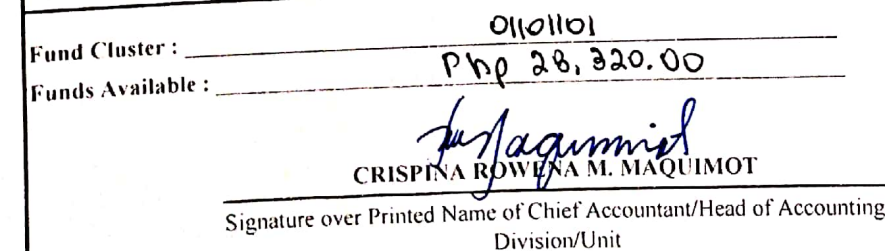 Fund Cluster : 01101101
Funds Available : Php 28,320.00
CRISPINA ROWENA M. MAQUIMOT
Signature over Printed Name of Chief Accountant/Head of Accounting
Division/Unit